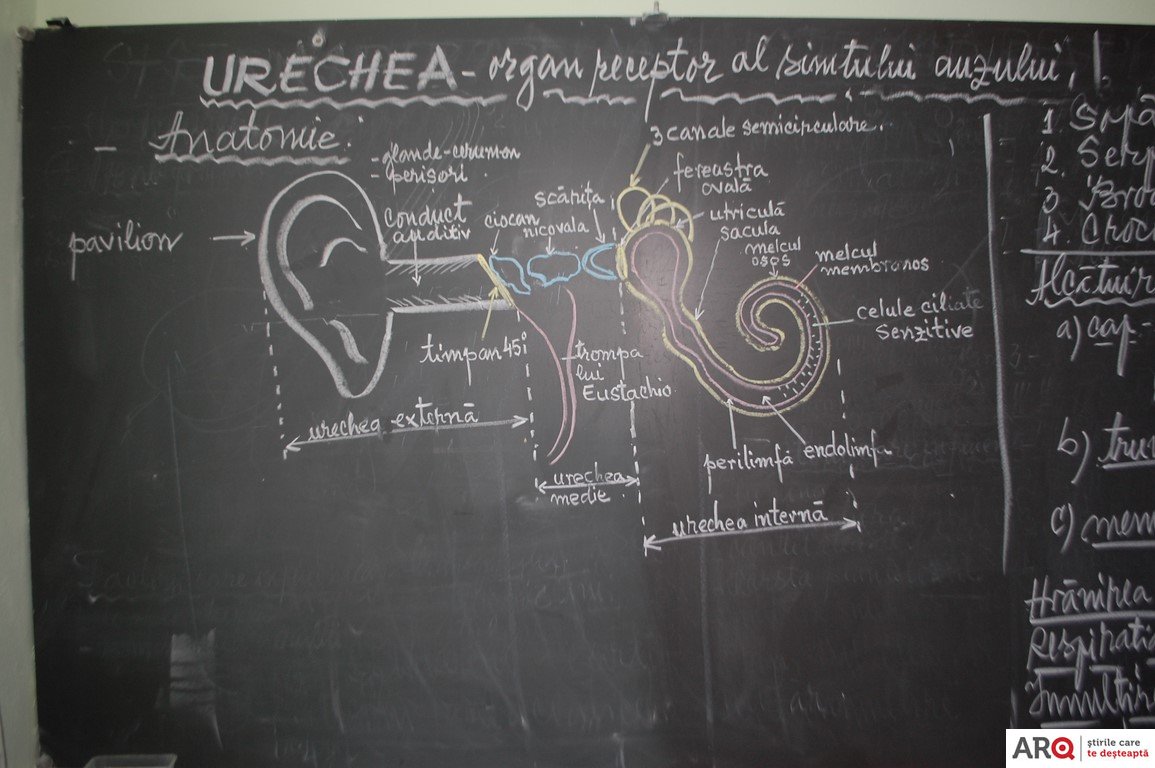 URECHEA - organ receptor al simtului auzului,
- Anatomie:
- glande-cerumen
- perisori
pavilion
conduct
auditiv
ciocan
nicovala
scărița
3 canale semicirculare.
fereastra
ovală
utriculă
sacula
melcul
osos
melcul
membranos
celule ciliate
senzitive
timpan 45
trompa
lui
Eustachio
urechea externă
urechea
medie
perilimfă
endolimfa
urechea internă
1.
2.
3
4. Croco
Alcătuir
a) cap -
b) tru
c) mem
Hrănirea
Respiratia
Înmultire
ARQ
știrile care
te deșteaptă